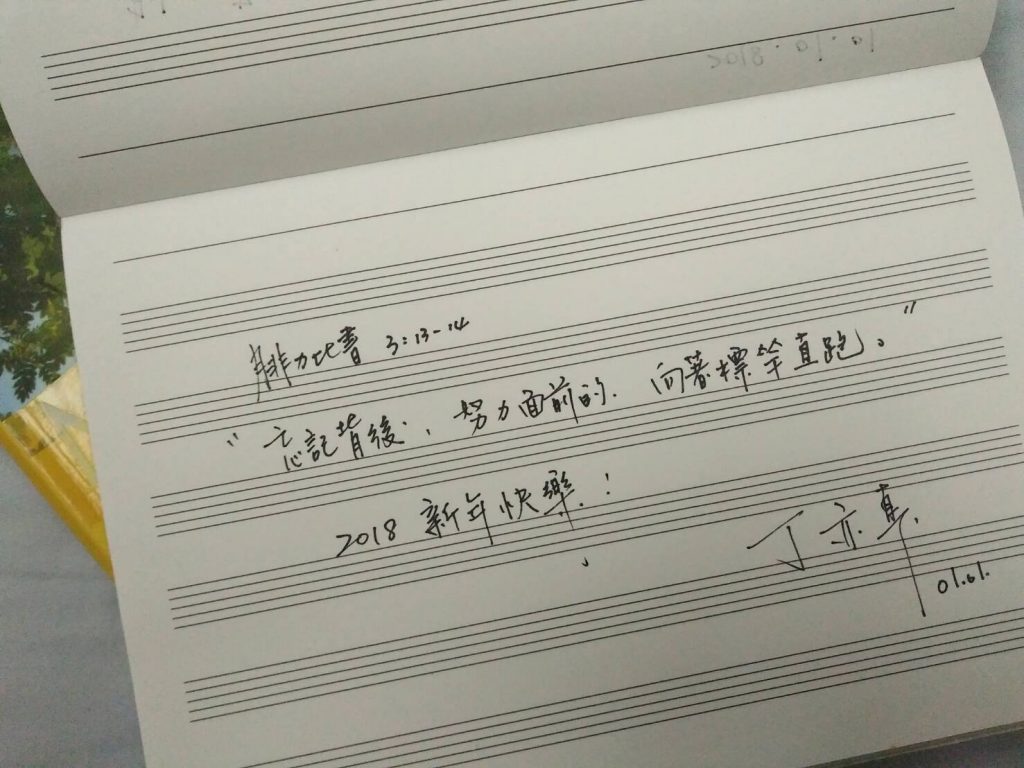 腓力比書 3:13-14
"忘記背後, 努力面前的. 向著標竿直跑。"
2018 新年快樂!
丁亦
01.01.